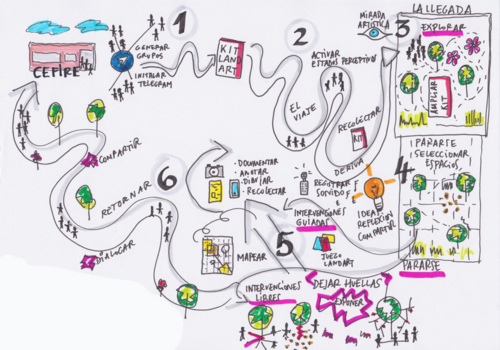 CEFIRE
GENERAR
GRUPOS
INSTALAR
TELEGRAM
1
KIT
LAND
ART
2
ACTIVAR
ESTADOS PERCEPTIVOS
EL
VIAJE
RECOLECTAR
KIT
DERIVA
MIRADA
ARTÍSTICA
3
LA LLEGADA
EXPLORAR
AMPLIAR
KIT
4
¡PARARSE
¡SELECCIONAR
ESPACIOS
PARARSE
IDEAS
REFLEXIÓN
COMPARTIR
REGISTRAR
SONIDOS
· DOCUMENTAR
· ANOTAR
· DIBUJAR
· RECOLECTAR
5
MAPEAR
INTERVENCIONES
GUIADAS
JUEGO
LANDART
INTERVENCIONES
LIBRES
DEJAR HUELLAS
EXPONER
6
RETORNAR
COMPARTIR
DIALOGAR